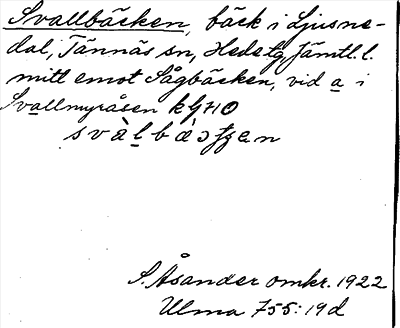 Svallbäcken, bäck i Ljusne-
dal, Tännäs sn, Hede tg Jämtl. l.
mitt emot Sågbäcken, vid a i
Svallmyråsen k G 710
S. Åsander omkr. 1922
Ulma 755:19d